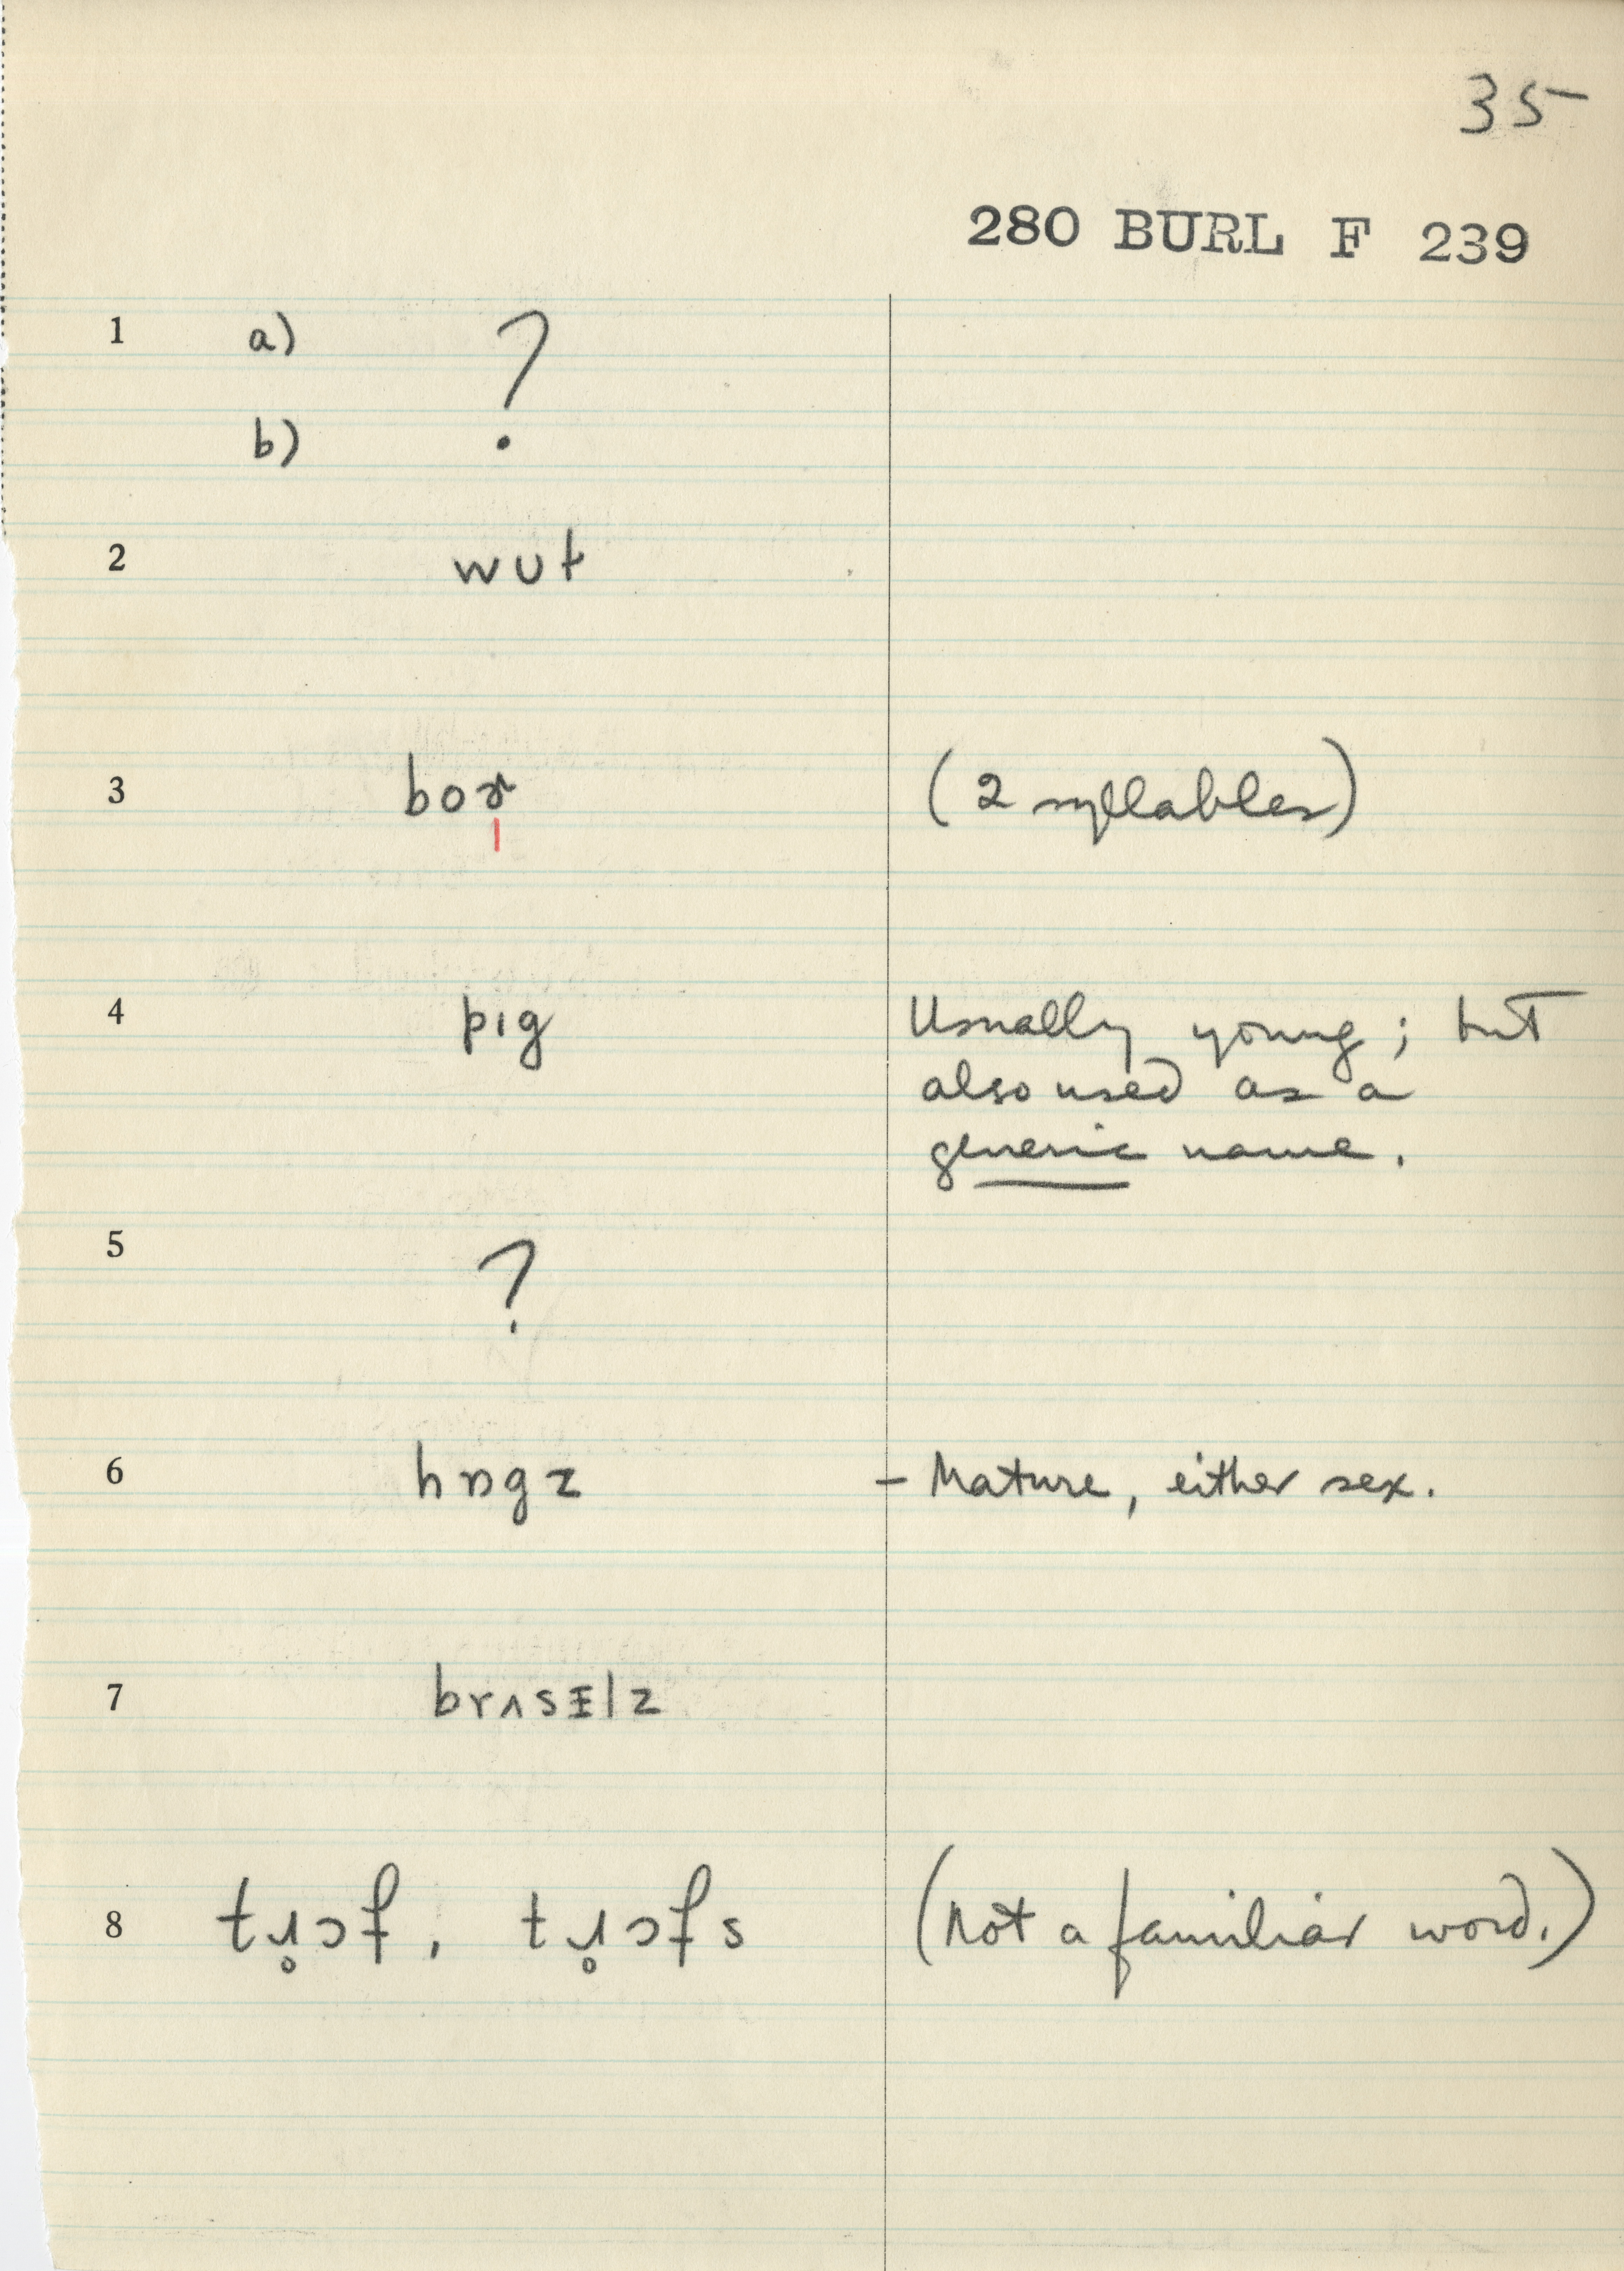 35
280 BURL F 239
1 a) ?
b)
2 wut
3 boɚ (2 syllables)
4 pɪg Usually young; but
also used as a
generic name.
5 ?
6 hɒgz – Mature, either sex.
7 brʌsᵻlz
8 tɹ̥ɔf, tɹ̥ɔfs (Not a familiar word.)